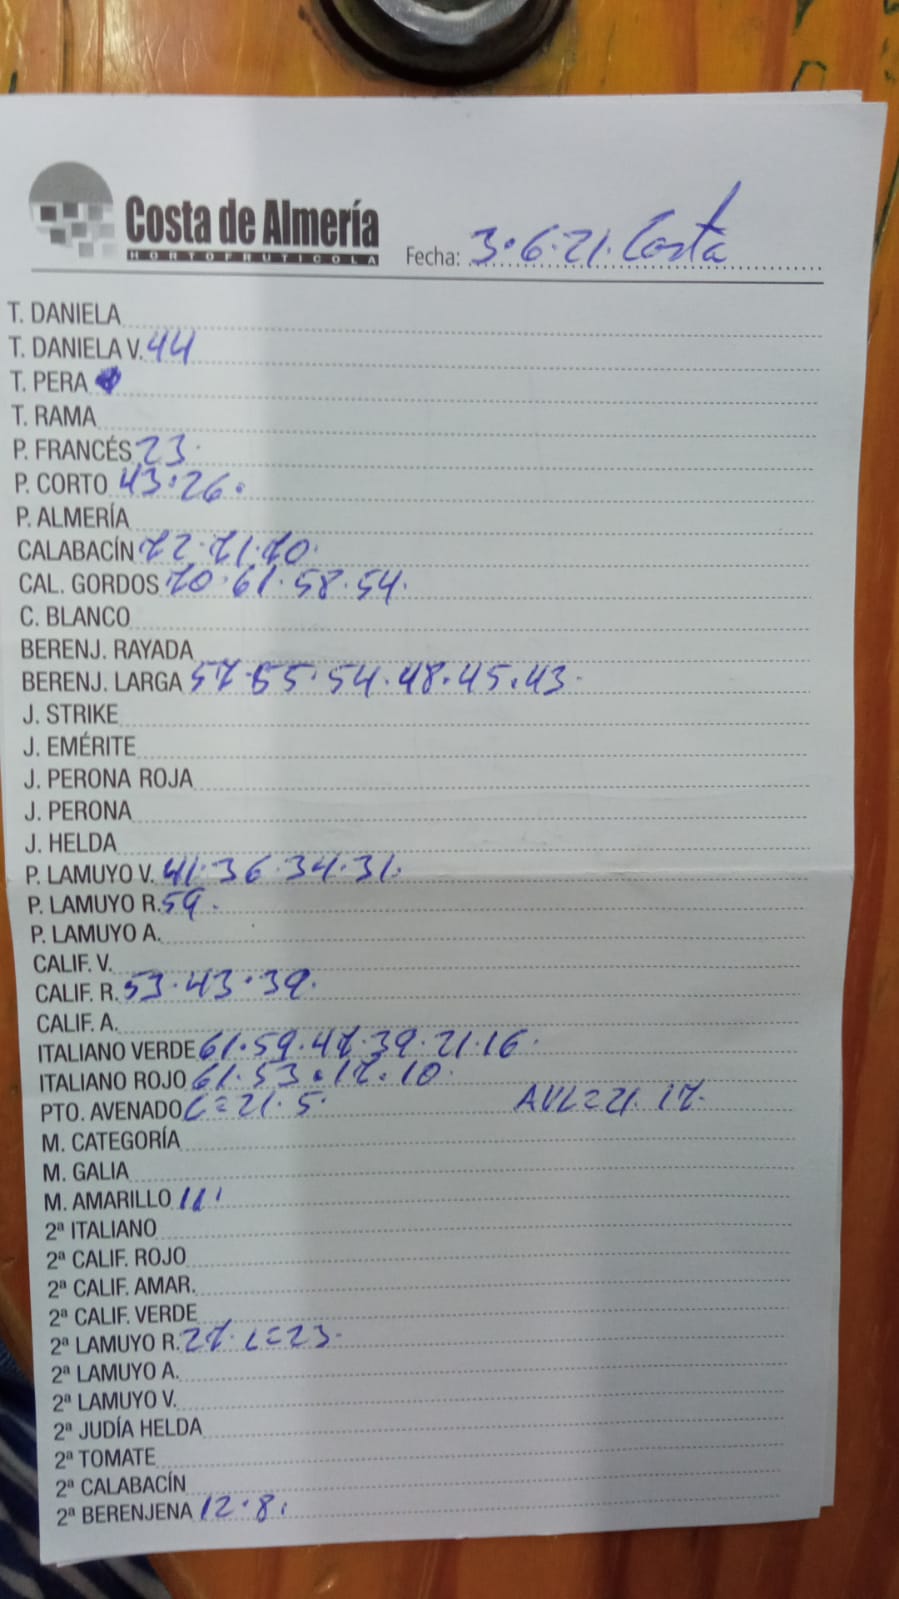 Costa de Almería
HORTOFRUTICOLA
Fecha: 3.6.21. Costa
T. DANIELA
T. DANIELA V. 44
T. PERA
T. RAMA
P. FRANCÉS 23.
P. CORTO 43.26.
P. ALMERÍA
CALABACÍN 72.71.70.
CAL. GORDOS 70.61.58.54.
C. BLANCO
BERENJ. RAYADA
BERENJ. LARGA 57.55.54.48.45.43.
J. STRIKE
J. EMÉRITE
J. PERONA ROJA
J. PERONA
J. HELDA
P. LAMUYO V. 41.36.34.31.
P. LAMUYO R. 59.
P. LAMUYO A.
CALIF. V.
CALIF. R. 53.43.39.
CALIF. A.
ITALIANO VERDE 61.59.47.39.21.16.
ITALIANO ROJO 61.53.17.10.
PTO. AVENADO C=21.5. AVL=21.17.
M. CATEGORÍA
M. GALIA
M. AMARILLO 11.
2ª ITALIANO
2ª CALIF. ROJO
2ª CALIF. AMAR.
2ª CALIF. VERDE
2ª LAMUYO R. 27. C=23.
2ª LAMUYO A.
2ª LAMUYO V.
2ª JUDÍA HELDA
2ª TOMATE
2ª CALABACÍN
2ª BERENJENA 12.8.